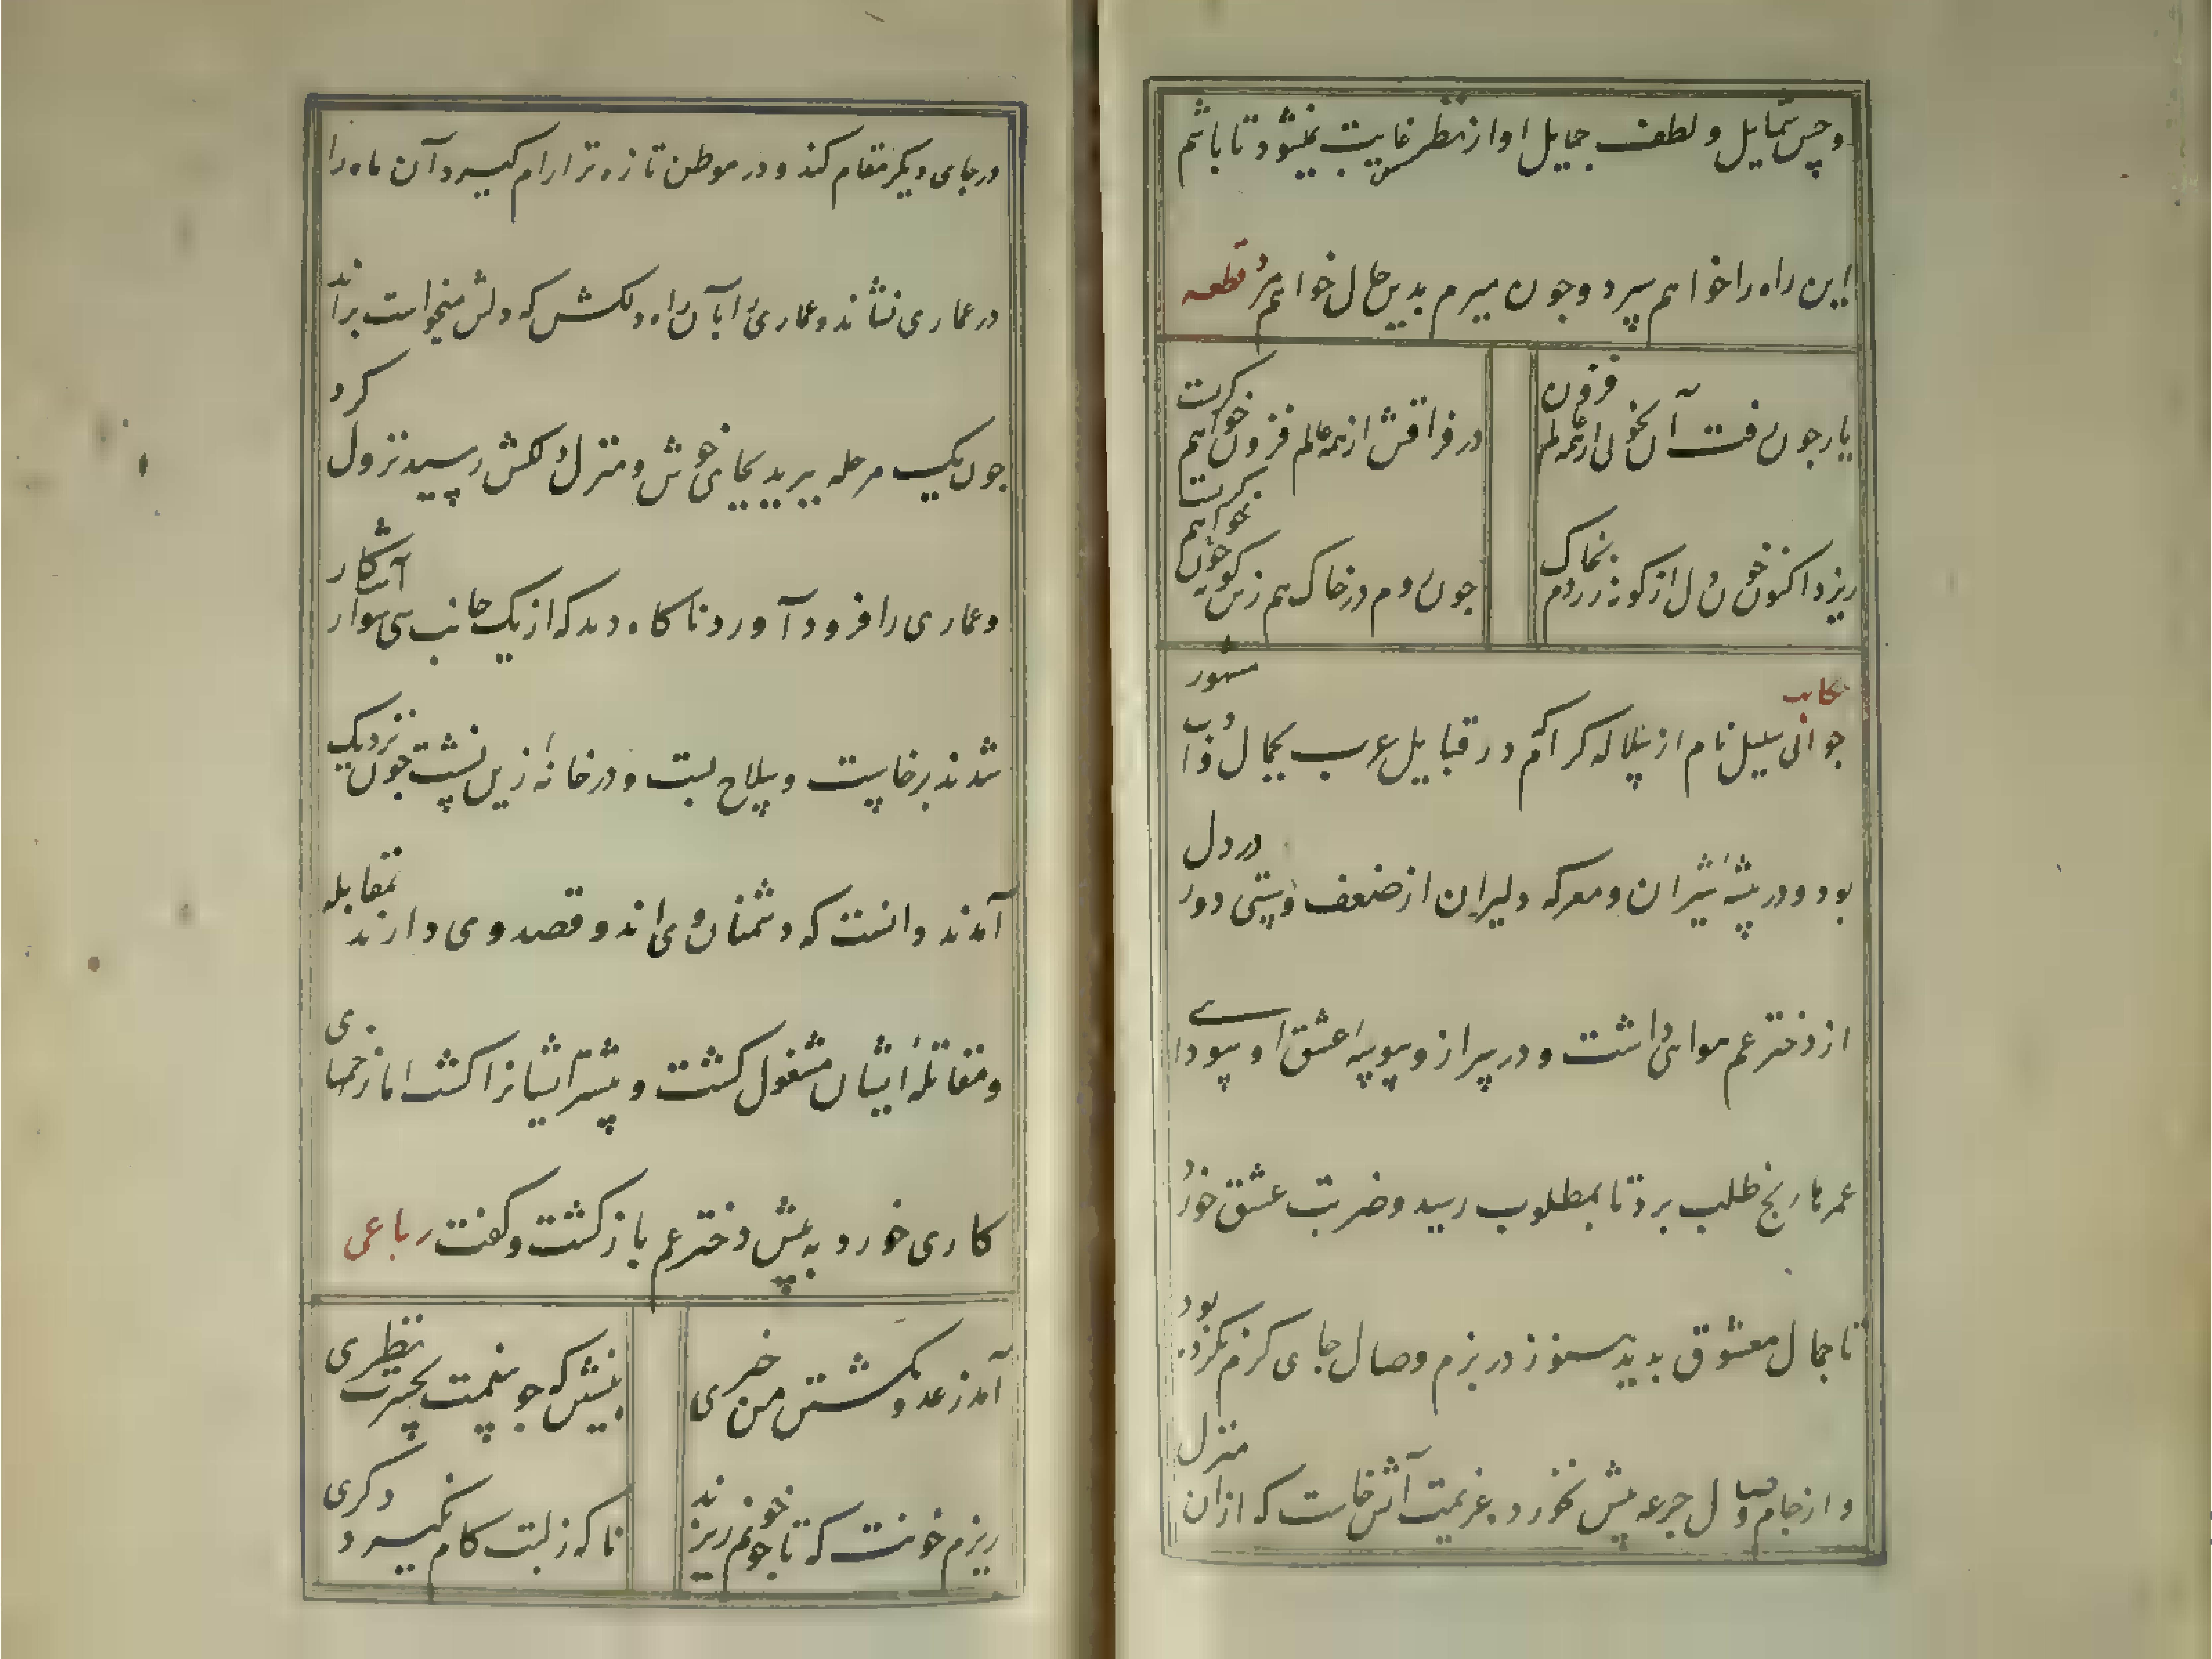 و حسن شمایل و لطف جمایل او از نظر غایب نمیشود تا باشم
این راه را خواهم سپرد و چون میرم بدین حال خواهم مرد قطعه
یار چون رفت آن نخولی از همه عالم فزون
در فراقش از همه عالم فزون خواهم گریست
ریزد اکنون خون دل از گونه زردم بخاک
چون روم در خاک هم زین گونه خون خواهم گریست
حکایت
جوانی سلیل نام از سلاله کرام در قبایل عرب بجمال و ادب مشهور
بود و در بیشه شیران و معرکه دلیران از ضعف و سستی دور در دل
از دختر عم هوای داشت و در سر از وسوسه عشق او سودای
عمرها رنج طلب برد تا بمطلوب رسید و ضربت عشق خورد
تا جمال معشوق بدید هنوز در بزم وصال جای گرم نکرده بود
و از جام وصال جرعه بیش نخورد بعزیمت آتش خاست که ازان منزل
در جای دیگر مقام کند و در موطن تازه تر ارام گیرد آن ماه را
در عماری نشاند و عماری را بآن راه دلکش که دلش میخواست براند
چون یک مرحله ببرید بجای خوش و منزل دلکش رسید نزول کرد
و عماری را فرود آورد ناگاه دید که از یک جانب سی سوار آشکار
شدند برخاست و سلاح بست و در خانهٔ زین نشست چون نزدیک
آمدند دانست که دشمنان وی اند و قصد وی دارند بمقابله
و مقاتلهٔ ایشان مشغول گشت و بیشتر ایشانرا کشت اما زخمهای
کاری خورد به پیش دختر عم باز گشت و گفت رباعی
آمد ز عدو بکشتن من خبری
بنشین که چو بینمت بحسرت نظری
ریزم خونت که تا چو خونم ریزند
ناگه ز لبت کام نگیرد دگری